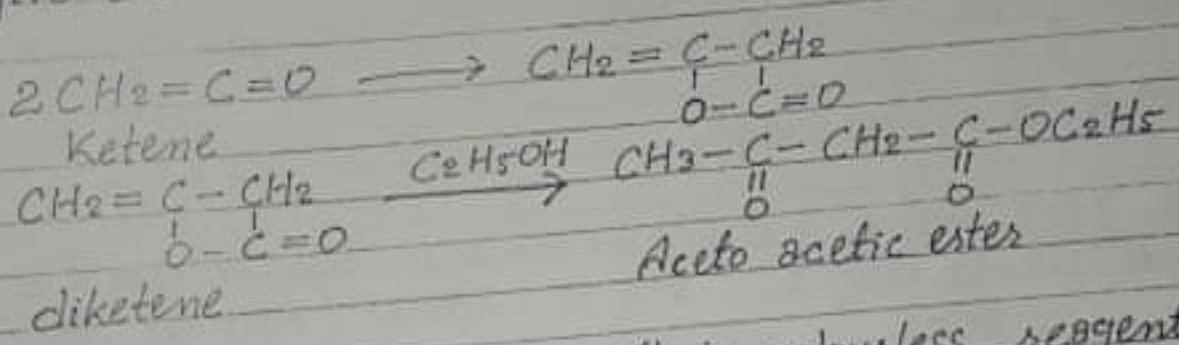 2CH2=C=O ⟶ CH2=C-CH2
O-C=O
Ketene
CH2=C-CH2 C2H5OH ⟶ CH3-C-CH2-C-OC2H5
O-C=O O O
diketene Aceto acetic ester
reagent